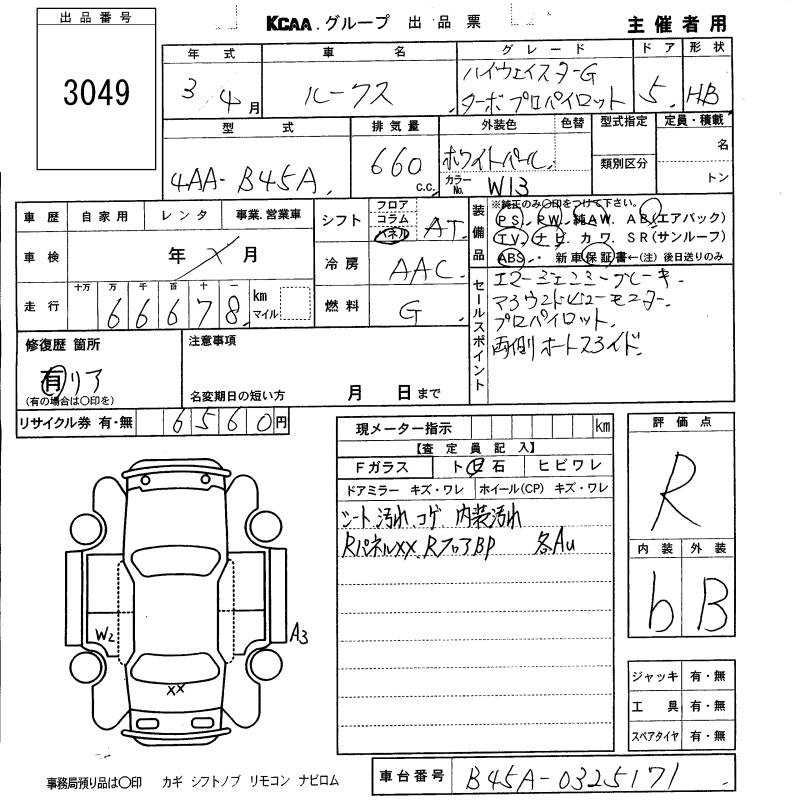 KCAA.グループ 出品票
主催者用
出品番号
3049
年式 車名 グレード ドア 形状
3/4月 ルークス ハイウェイスターG
ターボプロパイロット 5. HB
型式 排気量 外装色 色替 型式指定 定員・積載
4AA-B45A. 660 c.c. ホワイトパール 類別区分 名
カラーNo. W13 トン
車歴 自家用 レンタ 事業.営業車
車検 年 月
走行 十万 万 千 百 十 一
66678. km マイル
シフト フロア コラム パネル AT
冷房 AAC.
燃料 G
装備品 ※純正のみ○印をつけて下さい。
PS. PW. 純AW. AB(エアバック)
TV. ナビ. カワ. SR(サンルーフ)
ABS. 新車保証書←(注)後日送りのみ
セールスポイント
エマージェンシーブレーキ.
アラウンドビューモニター.
プロパイロット.
両側オートスライド.
修復歴 箇所
有 リア
(有の場合は○印を)
注意事項
名変期日の短い方 月 日まで
リサイクル券 有・無 6560円
現メーター指示 km
【査定員記入】
Fガラス ト日石 ヒビワレ
ドアミラー キズ・ワレ ホイール(CP) キズ・ワレ
シート汚れ コゲ 内装汚れ
Rパネルxx、RフロアBP 各Au
評価点
R
内装 外装
b B
ジャッキ 有・無
工具 有・無
スペアタイヤ 有・無
W2
A3
xx
事務局預り品は○印 カギ シフトノブ リモコン ナビロム
車台番号 B45A-0325171.